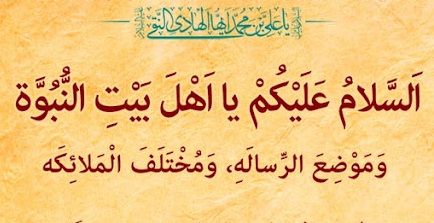 یا علي بن محمد ایها الهادي النقي
اَلسَّلامُ عَلَيْكُمْ يا اَهْلَ بَيْتِ النُّبُوَّة
وَمَوْضِعَ الرِّسالَهِ، وَمُخْتَلَفَ الْمَلائِكَه